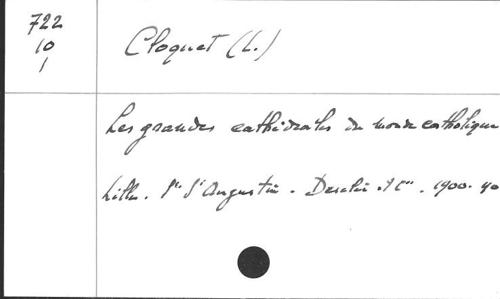 722
10
1
Cloquet (L.)
Les grandes cathédrales du monde catholique
Lille. Sté St Augustin. Desclée. & Cie. 1900. 40